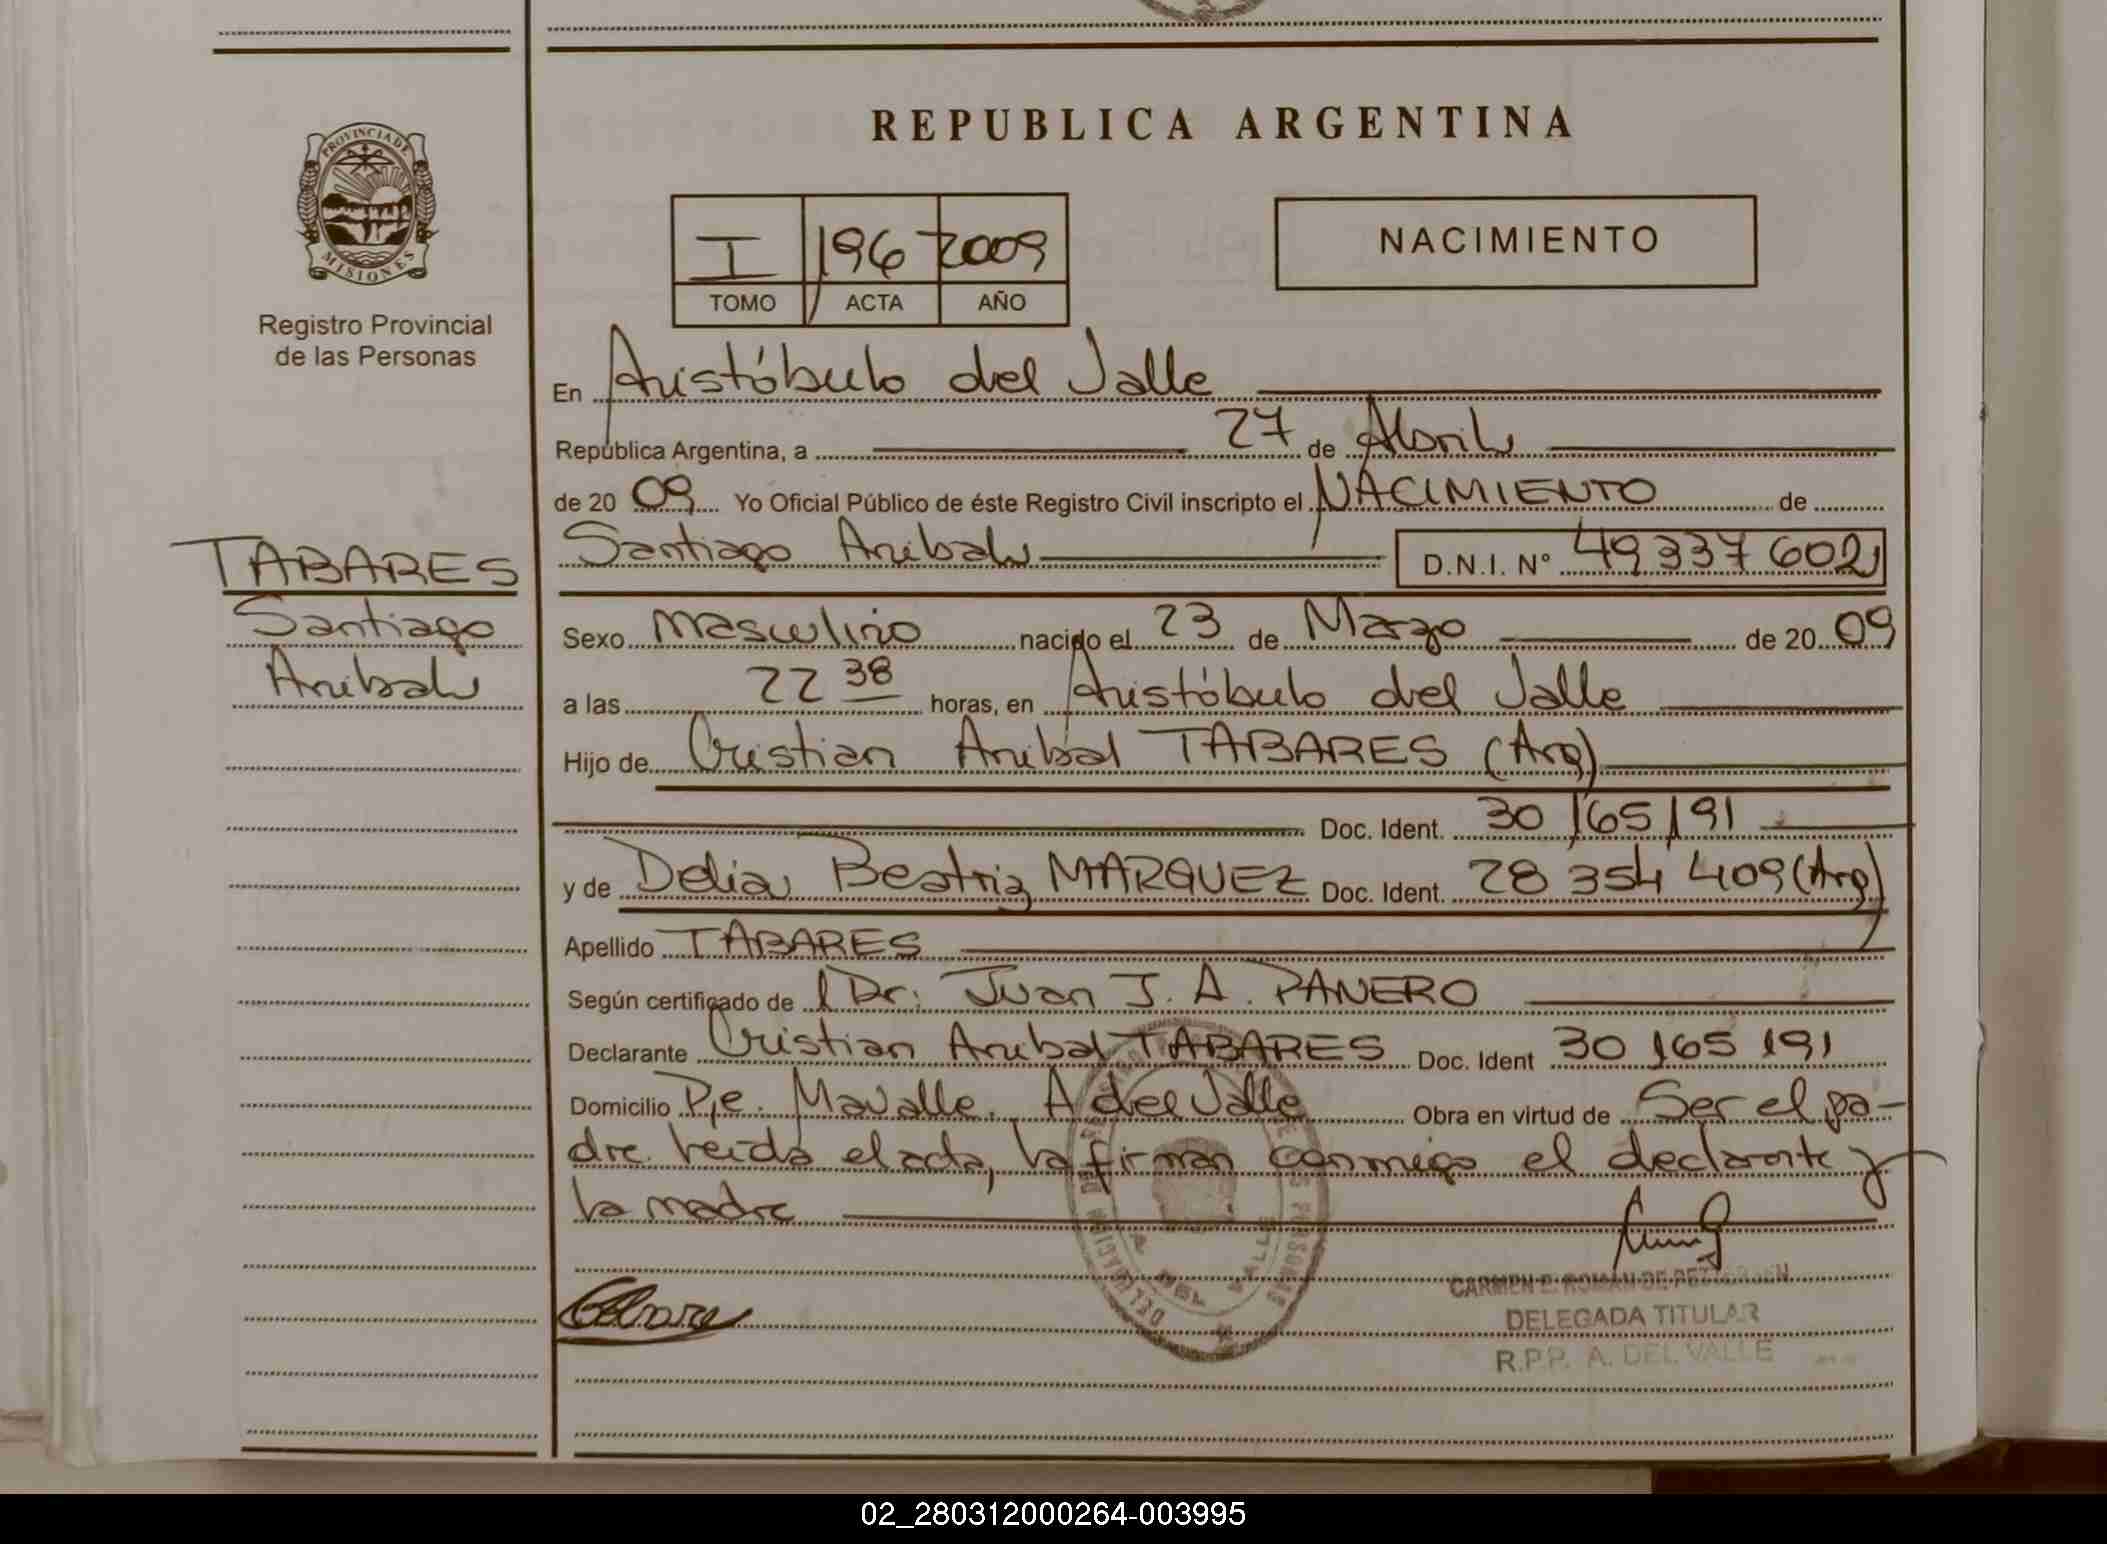 PROVINCIA DE
MISIONES
Registro Provincial
de las Personas
TABARES
Santiago
Anibal
REPUBLICA ARGENTINA
I 196 2009
TOMO ACTA AÑO
NACIMIENTO
En Aristóbulo del Valle
República Argentina, a 27 de Abril
de 20 09 Yo Oficial Público de éste Registro Civil inscripto el NACIMIENTO de
Santiago Anibal D.N.I. Nº 49 337 602
Sexo masculino nacido el 23 de Marzo de 20 09
a las 22 38 horas, en Aristóbulo del Valle
Hijo de Cristian Anibal TABARES (Arg)
Doc. Ident. 30 165 191
y de Delia Beatriz MARQUEZ Doc. Ident. 28 354 409 (Arg)
Apellido TABARES
Según certificado de l Dr. Juan J. A. PANERO
Declarante Cristian Anibal TABARES Doc. Ident 30 165 191
Domicilio Pje. Mavalle. A del Valle Obra en virtud de Ser el pa-
dre leida el acta, la firman conmigo el declarante y
la madre
CARMEN E. ROMAN DE PETTERSEN
DELEGADA TITULAR
R.P.P. A. DEL VALLE
02_280312000264-003995